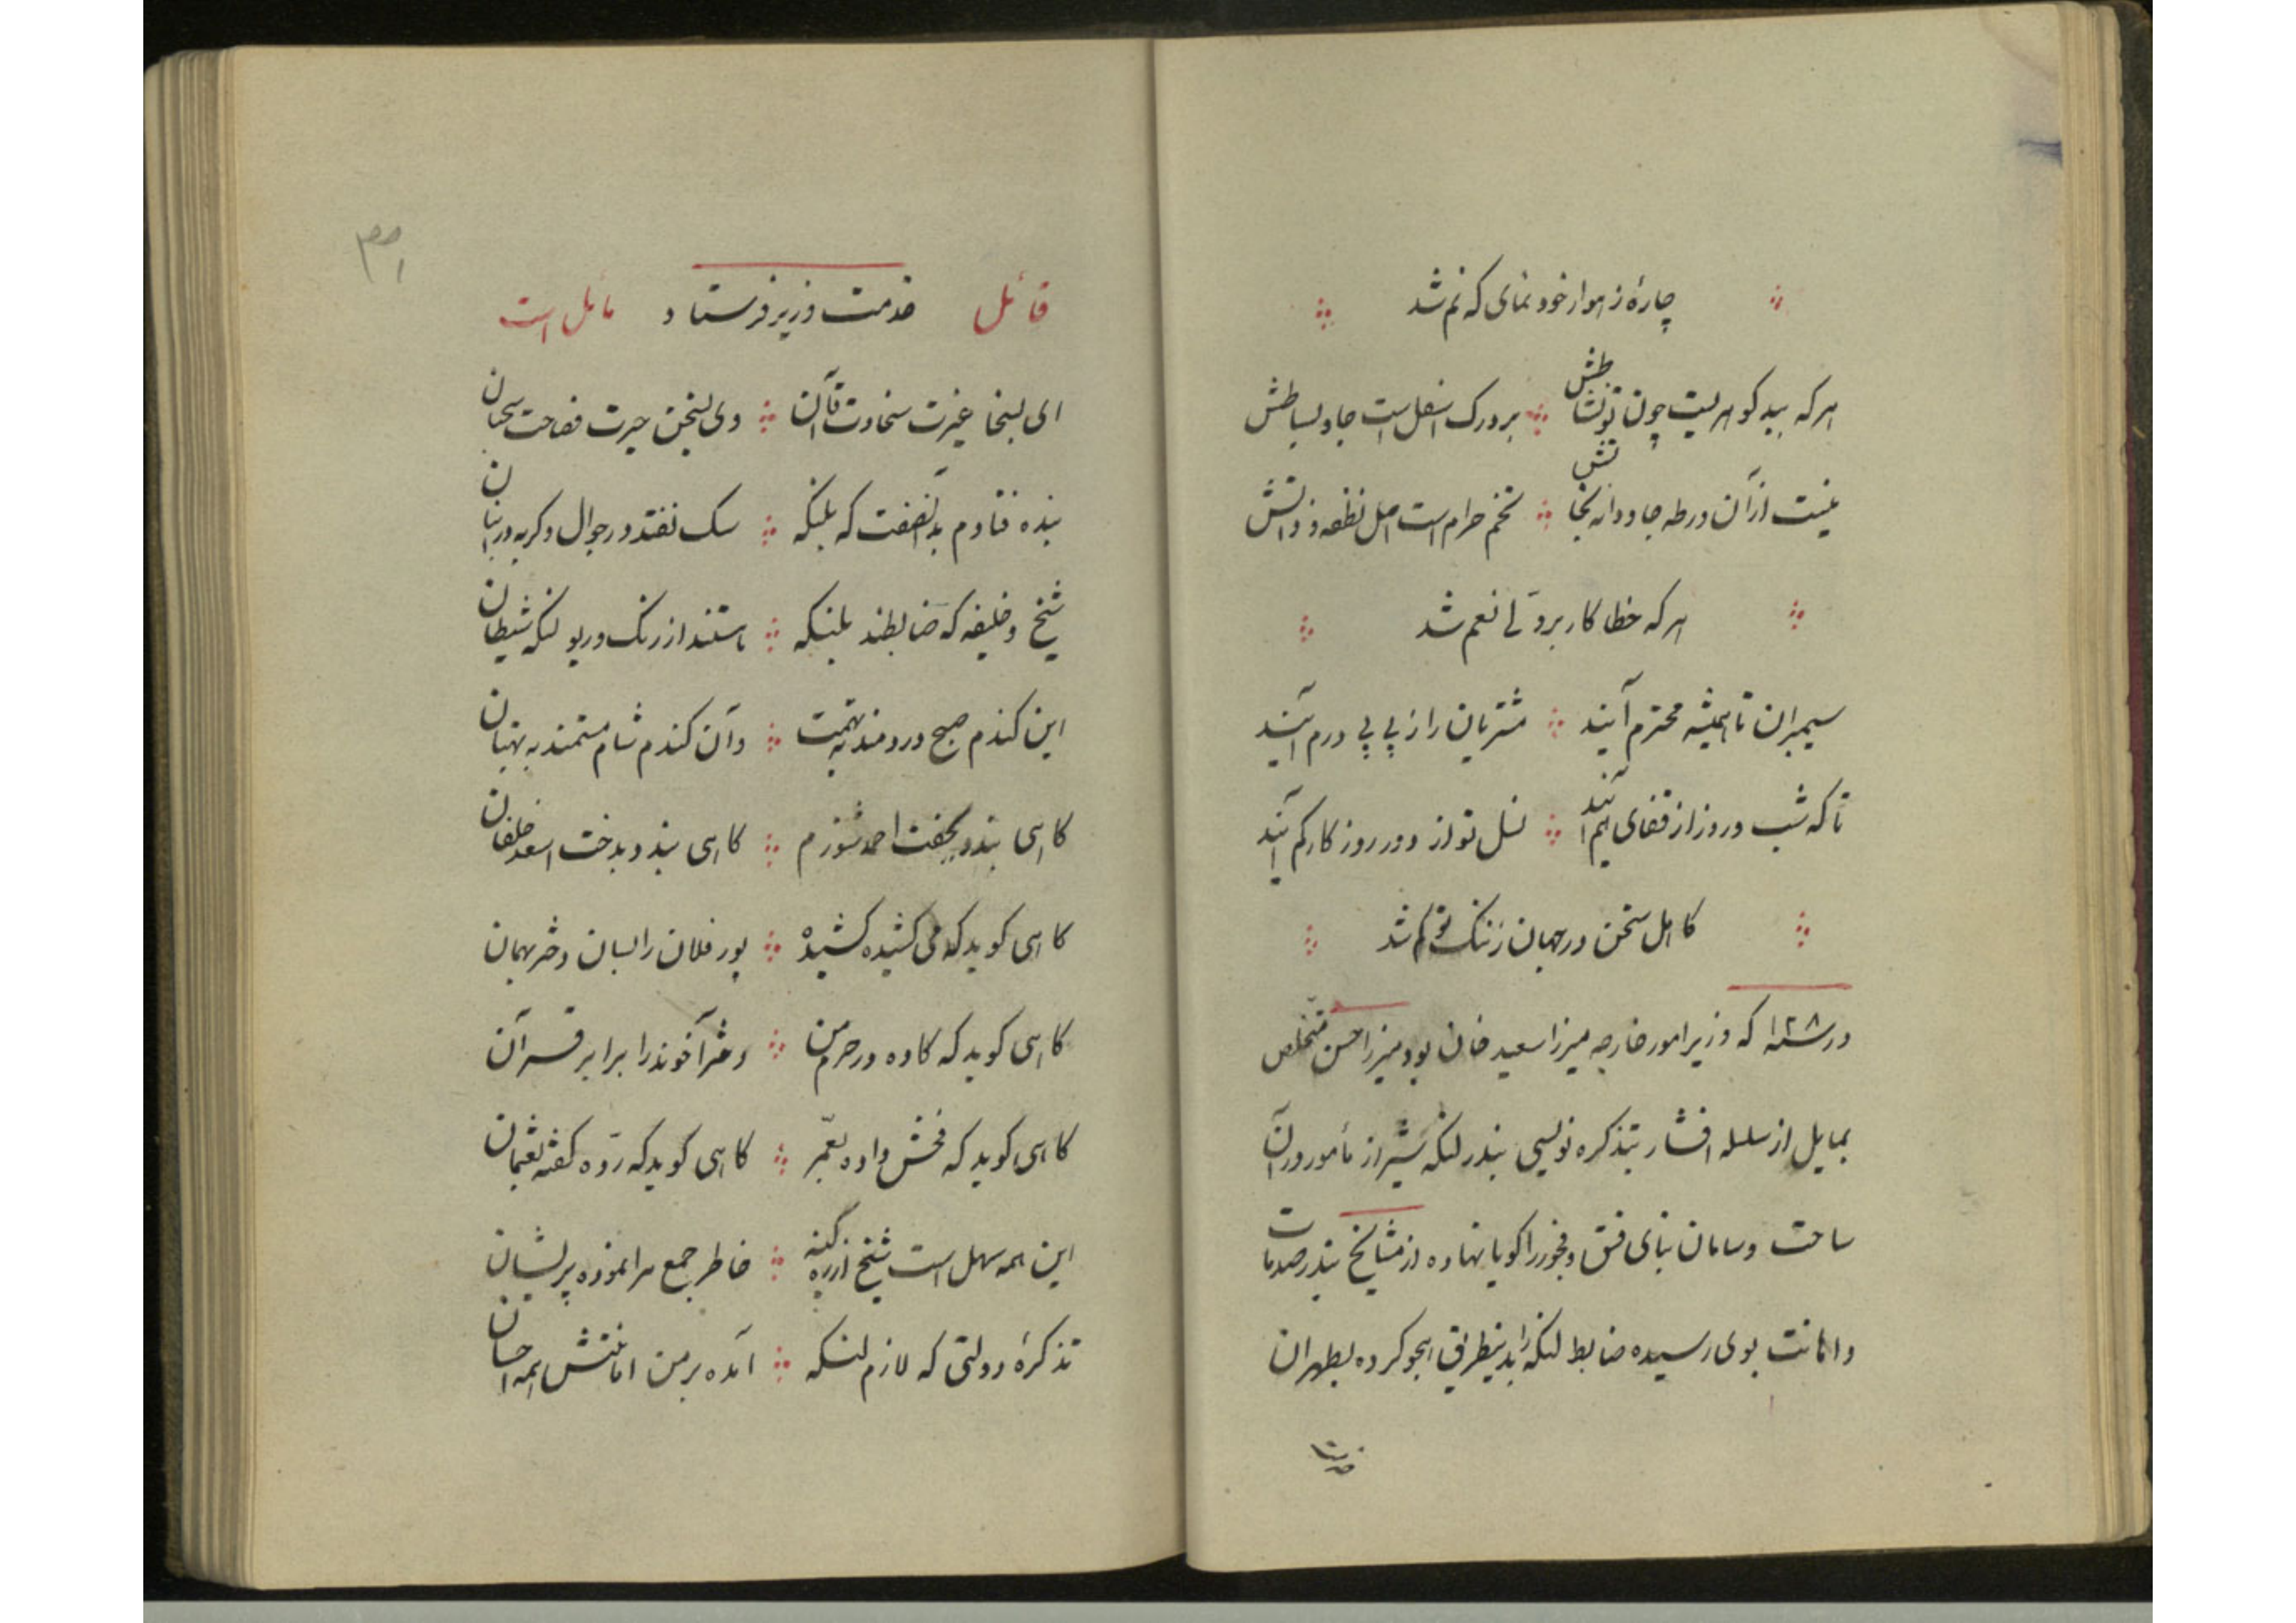 چارهٔ ز اهوار خود نمای که نم شد
هرکه ببید کو هر لیت چون تو نشاطش برورک اسفل است جاو بساطش
نیست از آن ورطه جاودانه نجاتش تخم حرام است اصل نطفه و ذاتش
هرکه خطا کار بر ولی نعم شد
سیمبران تا همیشه محترم آیند مشتریان را ز پی پی درم آیند
تا که شب و روز از قفای هم آیند نسل تو از دور روزکار کم آیند
کاهل سخن در جهان ز ننک تو کم شد
در سنه ۱۲۸ که وزیر امور خارجه میرزا سعید خان بود میرزا حسن متخلص
بمایل از سلسله افشار بتذکره نویسی بندر لنکه شیراز مأمور و در آن
ساحت و سامان بنای فسق و فجور را کویا نهاده از مشایخ بندر صدمات
و اهانت بوی رسیده ضابط لنکه را بدینطریق هجو کرده بطهران
خدمت
قائل خدمت وزیر فرستاد مایل است
ای بسخا غیرت سخاوت قاآن وی بسخن حیرت فصاحت سحبان
بنده فتادم بد آنصفت که بلنکه سک نفتد در جوال و کربه در انبان
شیخ و خلیفه که ضابطند بلنکه باستند از رنک و ریو لنکه شیطان
این کندم صبح دردمند به تهمت و آن کندم شام مستمند به بهتان
کاهی بندد بجفت احمد شوزم کاهی بندد بدخت اسعد خلفان
کاهی کوید که می کشیده کشیده پور فلان را بسان دختر بهمان
کاهی کوید که کاده در حرم من دختر آخوند را برابر قرآن
کاهی کوید که فحش داده بعمر کاهی کوید که رد کفته بعثمان
این همه سهل است شیخ از ره کینه خاطر جمع مرا نموده پریشان
تذکرهٔ دولتی که لازم لنکه آمده بر من امانتش همه احسان